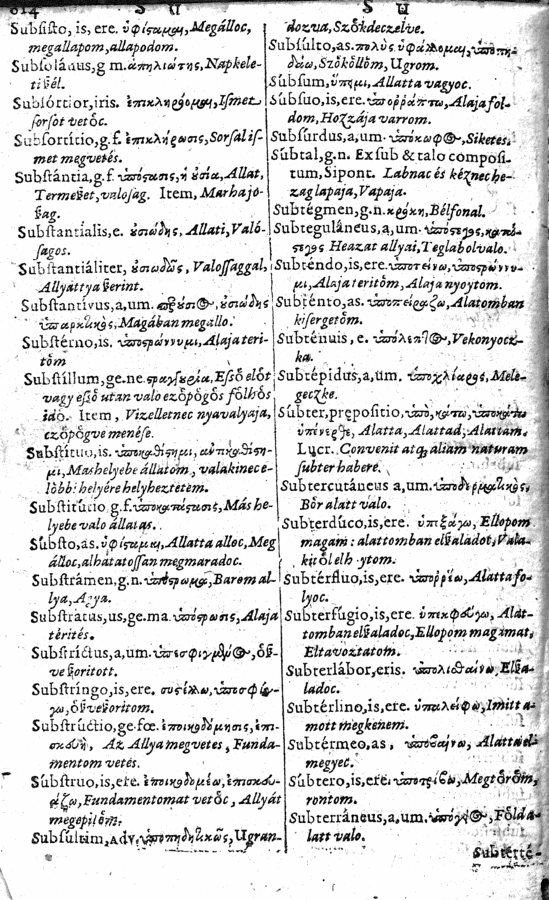 814 S U
Subsisto, is, ere. ὑφίσταμαι, Megálloc,
megallapom, allapodom.
Subsolánus, g m. ἀπηλιώτης, Napkele-
ti ßél.
Subsórtior, iris. ἐπικληρόομαι, Ismet
sorsot vetȯc.
Subsortítio, g. f. ἐπικλήρωσις, Sorsal is-
met megvetés.
Substántia, g. f. ὑπόστασις, ἡ ὐσία, Allat,
Termeßet, valosag. Item, Marha jo-
ßag.
Substantialis, e. ὐσιώδης, Allati, Való-
sagos.
Substantiáliter, ὐσιωδῶς, Valossaggal,
Allyáttya ßerint.
Substantívus, a, um. ὐσιώδης
ὑπαρκτικὸς, Magában megallo.
Substérno, is. ὑποστρώννυμι, Alaja teri-
tȯm
Substíllum, ge. ne. στραγγυρία, Essȯ elȯt
vagy essȯ utan valo czȯpȯgȯs fȯlhȯs
idȯ. Item, Vizelletnec nyavalyaja,
czȯpȯgve menése.
Substítuo, is. ὑποκαθίστημι, ἀντικαθίστη-
μι, Mas helyebe állatom, valakinec e-
lȯbbi helyére helyheztetem.
Substitútio g. f. ὑποκατάστασις, Más he-
lyebe valo állatas.
Súbsto, as. ὑφίσταμαι, Allatta alloc, Meg
álloc, alhatatossan megmaradoc.
Substrámen, g. n. ὑπόστρωμα, Barom al-
lya, Agya.
Substrátus, us, ge. ma. ὑπόστρωσις, Alaja
térités.
Substríctus, a, um. ὑπεσφιγμένος, ȯß-
ve ßoritott.
Substríngo, is, ere. συστέλλω, ὑποσφίγ-
γω, ȯßve ßoritom.
Substrúctio, ge. fœ. ἐποικοδόμησις, ἐπι-
σκευὴ, Az Allya megvetes, Funda-
mentom vetés.
Súbstruo, is, ere. ἐποικοδομέω, ἐπισκευ-
άζω, Fundamentomat vetȯc, Allyát
megepitȯm.
Subsúltim, Adv. ὑποπηδητικῶς, Ugran-
S U
dozva, Szȯkdeczelve.
Subsúlto, as. πολὺς ὑφάλλομαι, ὑποπη-
δάω, Szȯkȯllȯm, Ugrom.
Súbsum, ὕπειμι, Allatta vagyoc.
Súbsuo, is, ere. ὑποῤῥάπτω, Alaja fol-
dom, Hozzája varrom.
Subsúrdus, a, um. ὑπόκωφος, Siketes.
Súbtal, g. n. Ex sub & talo composi-
tum, Sipont. Labnac és kéznec he-
zag lapaja, Vapaja.
Subtégmen, g. n. κρόκη, Bélfonal.
Subteguláneus, a, um. ὑπόστεγος, κατά-
στεγος Heazat allyai, Teglabol valo.
Subténdo, is, ere. ὑποτείνω, ὑποστρώννυ-
μι, Alaja teritȯm, Alaja nyoytom.
Subténto, as. ὑποπειράζω, Alatomban
kisergetȯm.
Subténuis, e. ὑπόλεπτος, Vekonyocz-
ka.
Subtépidus, a, um. ὑποχλίαρος, Mele-
geczke.
Súbter, præpositio, ὑπὸ, κάτω, ὑποκάτω
ὑπένερθε, Alatta, Alattad, Alattam.
Lucr. Convenit atq; aliam naturam
subter habere.
Subtercutáneus a, um. ὑποδερματικὸς,
Bȯr alatt valo.
Subterdúco, is, ere. ὑπεξάγω, Ellopom
magam: alattomban elßaladot, Vala-
kitȯl elh ytom.
Subtérfluo, is, ere. ὑποῤῥέω, Alatta fo-
lyoc.
Subterfúgio, is, ere. ὑπεκφεύγω, Alat-
tomban elßaladoc, Ellopom magamat,
Eltavoztatom.
Subterlábor, eris. ὑπολισθαίνω, Elßa-
ladoc.
Subtérlino, is, ere. ὑπαλείφω, Imitt a-
mott megkenem.
Subtérmeo, as, ὑποβαίνω, Alatta el-
megyec.
Súbtero, is, ere. ὑποτρίβω, Megtȯrȯm,
rontom.
Subterráneus, a, um. ὑπόγειος, Fȯld a-
latt valo.
Subterté-